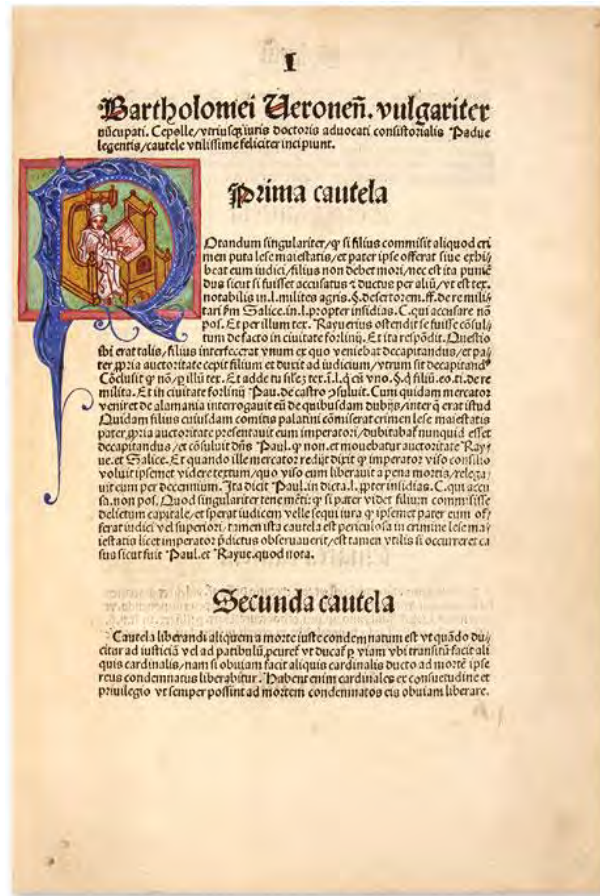 I
Bartholomei Ueroneñ. vulgariter
nũcupati. Cepolle/vtriusqȝ iuris doctoris aduocati consistorialis Padue
legentis/cautele vtilissime feliciter incipiunt.
Prima cautela
Otandum singulariter/ꝙ si filius commisit aliquod cri
men puta lese maiestatis/et pater ipse offerat siue exhi/
beat eum iudici/filius non debet mori/nec est ita puniẽ
dus sicut si fuisset accusatus ⁊ ductus per aliũ/vt est tex.
notabilis in.l.milites agris.§.desertorem.ff.de re mili/
tari Salice.in.l.propter insidias.C.qui accusare nõ
pos. Et per illum tex. Rayuerius ostendit se fuisse cõsul/
tum de facto in ciuitate forliuij. Et ita respõdit. Questio
sibi erat talis/filius interfecerat vnum ex quo veniebat decapitandus/et pa/
ter ꝓpria auctoritate cepit filium et duxit ad iudicium/vtrum sit decapitandꝰ
Cõclusit ꝙ nõ/ꝑ illũ tex. Et adde tex.ĩ.l.q̃ cũ vno.§.q̃ filiũ.eo.ti.de re
milita. Et in ciuitate forliuij Pau.de castro ꝯsuluit. Cum quidam mercator
veniret de alamania interrogauit eũ de quibusdam dubijs/inter q̃ erat istud
Quidam filius cuiusdam comitis palatini cõmiserat crimen lese maiestatis
pater ꝓpria auctoritate presentauit eum imperatori/dubitabat nunquid esset
decapitandus/et cõsuluit dñs Paul.ꝙ non.et mouebatur auctoritate Ray/
ue.et Salice. Et quando ille mercator redijt dixit ꝙ imperator viso consilio
voluit ipsemet videre textum/quo viso eum liberauit a pena mortis/relega/
uit eum per decennium. Ita dicit Paul.in dicta.l.ꝓpter insidias.C.qui accu
sa.non pos. Quod singulariter tene mẽti: ꝙ si pater videt filium commisisse
delictum capitale/et sperat iudicem velle sequi iura ꝙ ipsemet pater eum of/
ferat iudici vel superiori/tamen ista cautela est periculosa in crimine lese ma/
iestatis licet imperator p̃dictus obseruauerit/est tamen vtilis si occurreret ca
sus sicut fuit Paul.et Rayue.quod nota.
Secunda cautela
Cautela liberandi aliquem a morte iuste condemnatum est vt quãdo du/
citur ad iusticiã vel ad patibulũ ꝓcuret vt ducat ꝑ viam vbi transitũ facit ali
quis cardinalis/nam si obuiam facit aliquis cardinalis ducto ad mortẽ ipse
reus condemnatus liberabitur. Habent enim cardinales ex consuetudine et
priuilegio vt semper possint ad mortem condemnatos eis obuiam liberare.